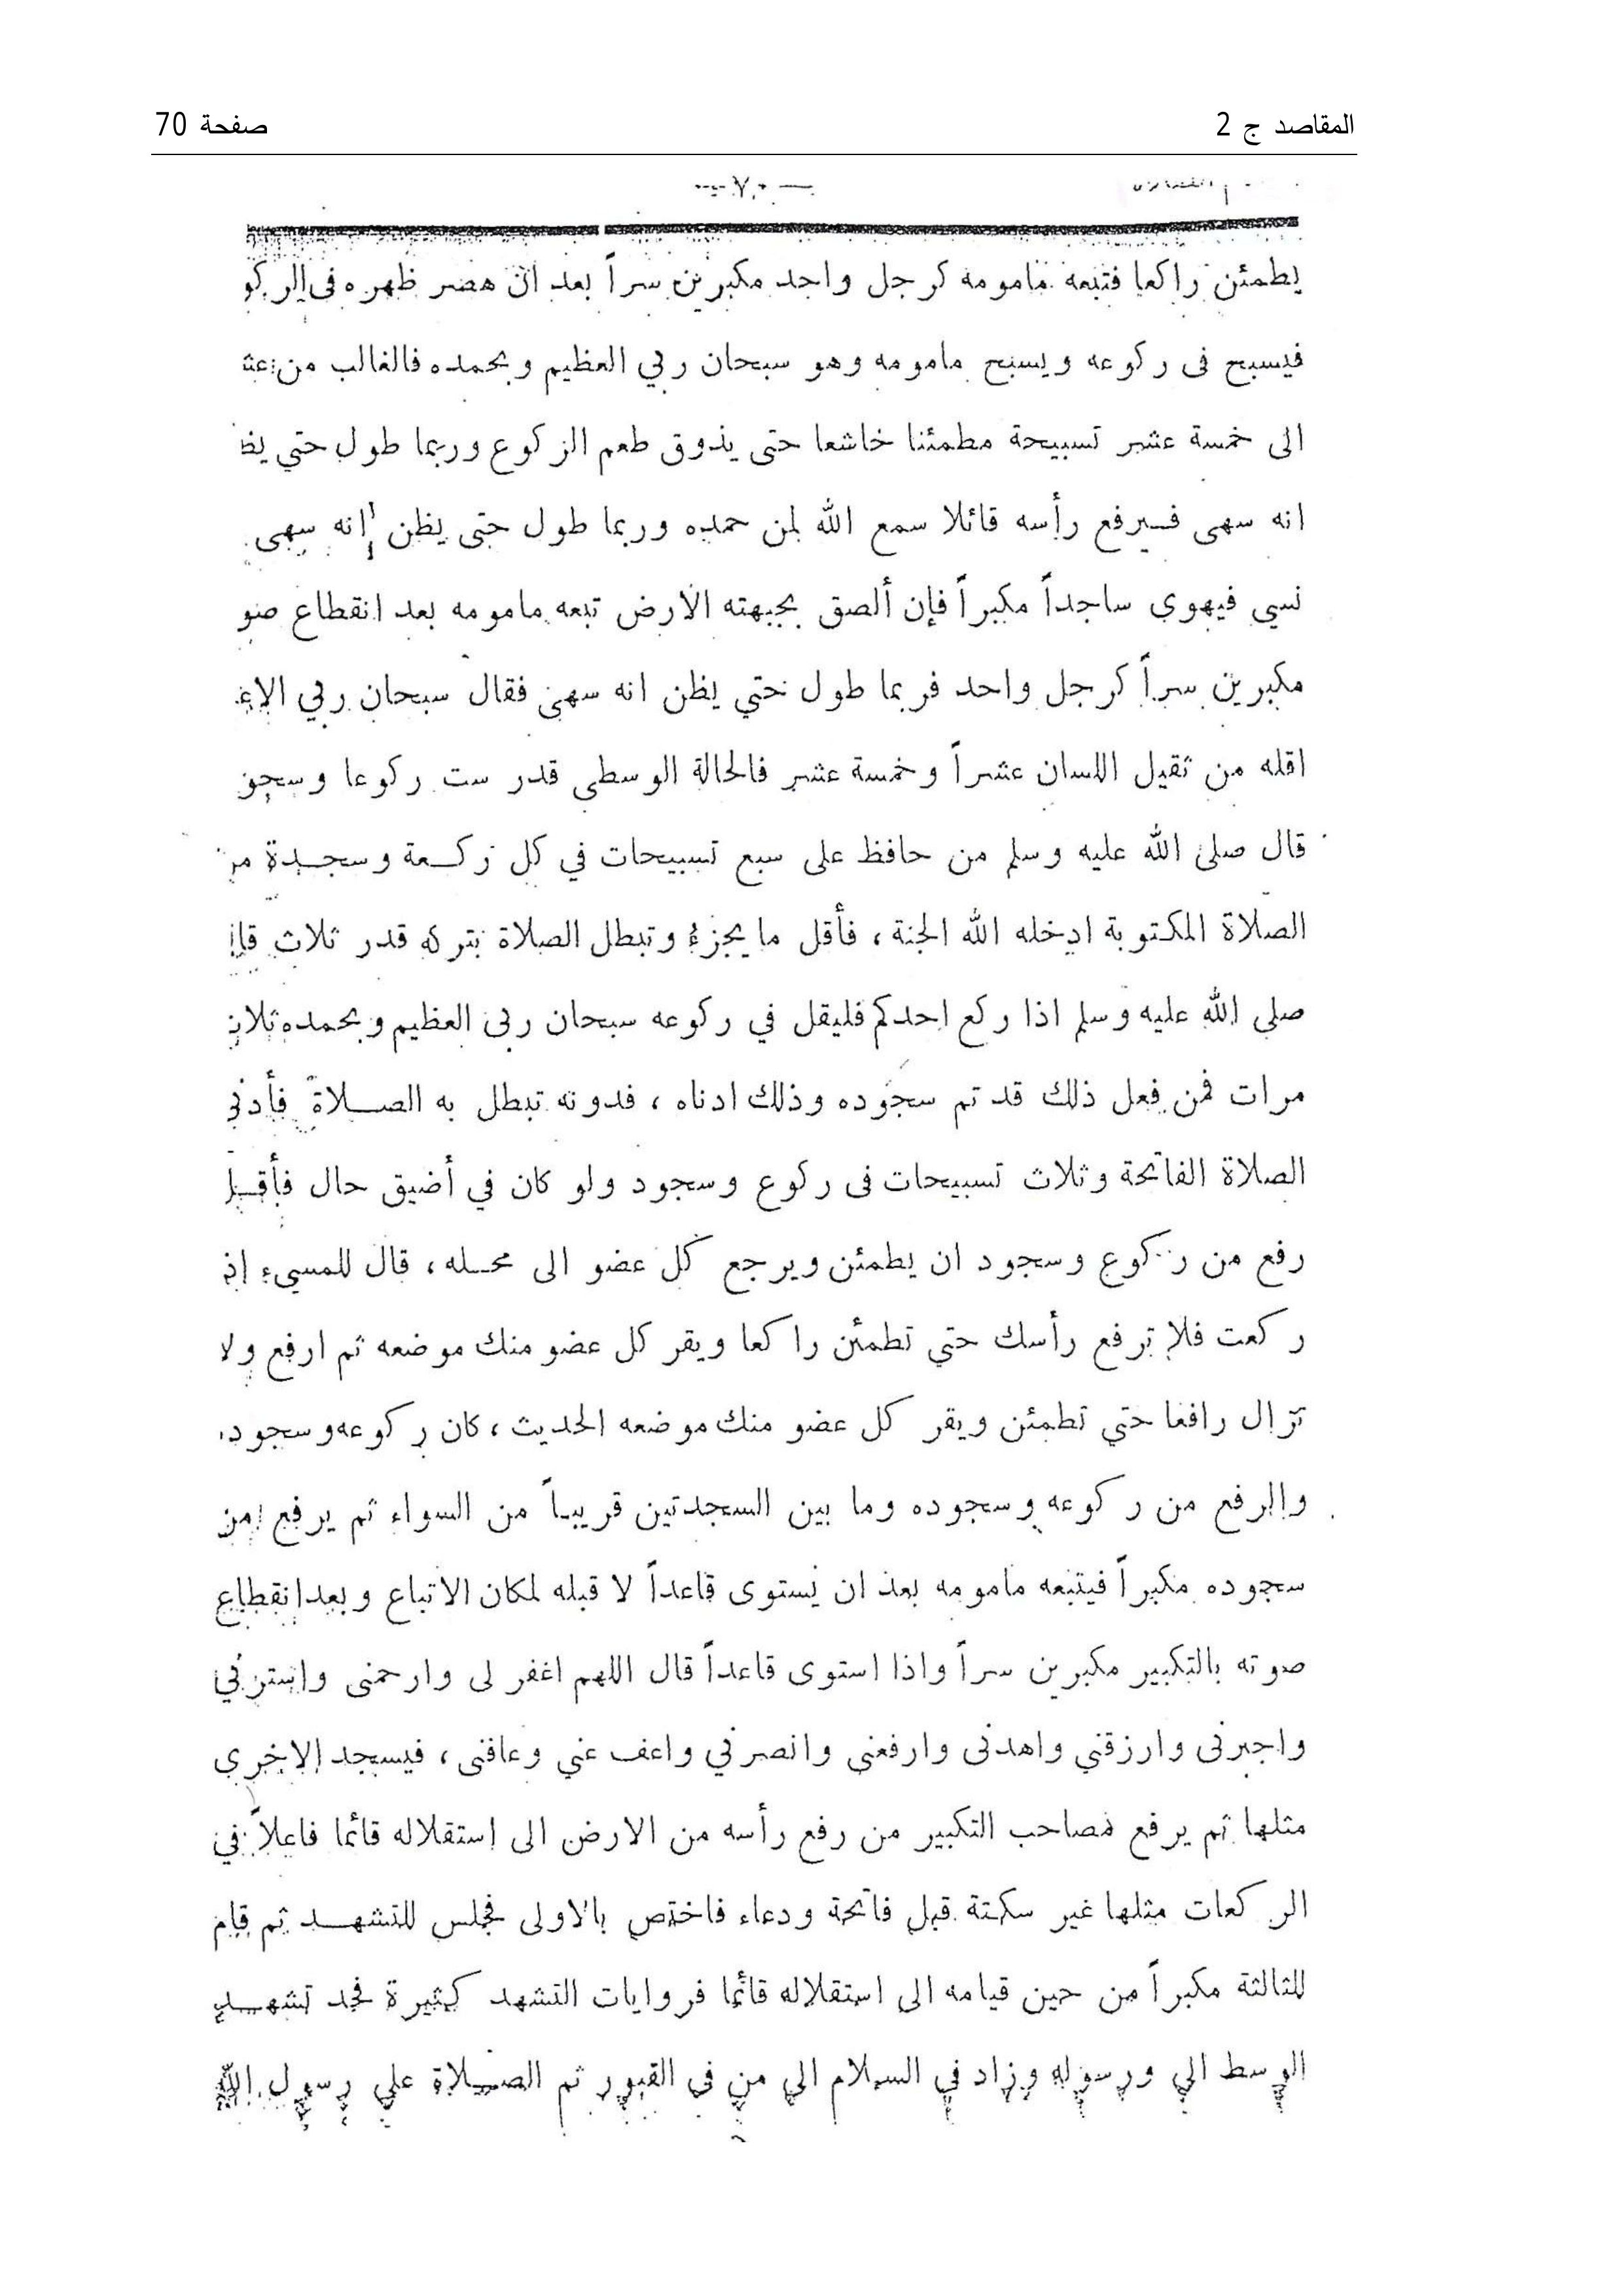 المقاصد ج 2
صفحة 70
— ٧٠ —
يطمئن راكعا فتبعه مامومه كرجل واحد مكبرين سراً بعد ان هصر ظهره فى الركو
فيسبح فى ركوعه ويسبح مامومه وهو سبحان ربي العظيم وبحمده فالغالب من
الى خمسة عشر تسبيحة مطمئنا خاشعا حتى يذوق طعم الركوع وربما طول حتي
انه سهى فيرفع رأسه قائلا سمع الله لمن حمده وربما طول حتى يظن انه سهى
نسي فيهوى ساجداً مكبراً فإن ألصق بجبهته الارض تبعه مامومه بعد انقطاع صو
مكبرين سراً كرجل واحد فربما طول حتي يظن انه سهى فقال سبحان ربي
اقله من ثقيل اللسان عشراً وخمسة عشر فالحالة الوسطى قدر ست ركوعا وسجو
قال صلى الله عليه وسلم من حافظ على سبع تسبيحات في كل ركعة وسجدة من
الصلاة المكتوبة ادخله الله الجنة ، فأقل ما يجزئ وتبطل الصلاة بتركه قدر ثلاث قا
صلى الله عليه وسلم اذا ركع احدكم فليقل في ركوعه سبحان ربى العظيم وبحمده ثلاث
مرات فمن فعل ذلك قد تم سجوده وذلك ادناه ، فدونه تبطل به الصلاة فأدنى
الصلاة الفاتحة وثلاث تسبيحات فى ركوع وسجود ولو كان في أضيق حال فأقل
رفع من ركوع وسجود ان يطمئن ويرجع كل عضو الى محله ، قال للمسيء اذ
ركعت فلا ترفع رأسك حتي تطمئن راكعا ويقر كل عضو منك موضعه ثم ارفع ولا
تزال رافعا حتي تطمئن ويقر كل عضو منك موضعه الحديث ، كان ركوعه وسجود
والرفع من ركوعه وسجوده وما بين السجدتين قريباً من السواء ثم يرفع من
سجوده مكبراً فيتبعه مامومه بعد ان يستوى قاعداً لا قبله لمكان الاتباع وبعد انقطاع
صوته بالتكبير مكبرين سراً واذا استوى قاعداً قال اللهم اغفر لى وارحمنى واسترني
واجبرنى وارزقني واهدنى وارفعنى وانصرني واعف عني وعافنى ، فيسجد الاخرى
مثلها ثم يرفع مصاحب التكبير من رفع رأسه من الارض الى استقلاله قائما فاعلاً في
الركعات مثلها غير سكتة قبل فاتحة ودعاء فاختص بالاولى فجلس للتشهد ثم قام
للثالثة مكبراً من حين قيامه الى استقلاله قائما فروايات التشهد كثيرة فحد تشهد
الوسط الي ورسوله وزاد في السلام الي من في القبور ثم الصلاة على رسول الله